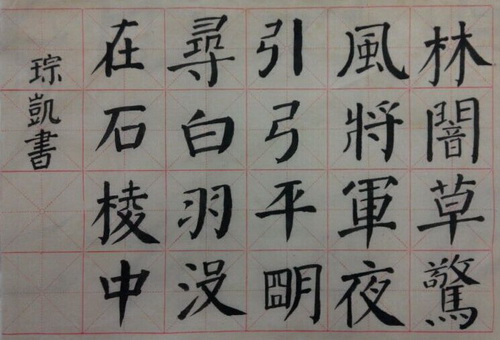 林闇草驚
風將軍夜
引弓平朙
尋白羽没
在石棱中
琮凱書